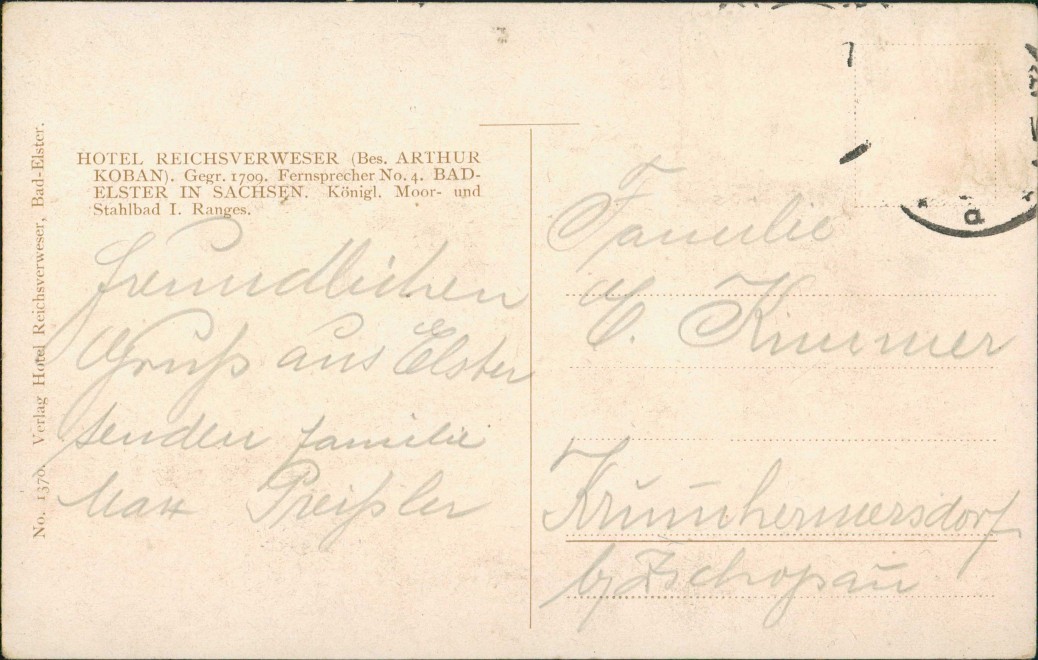 HOTEL REICHSVERWESER (Bes. ARTHUR
KOBAN). Gegr. 1709. Fernsprecher No. 4. BAD-
ELSTER IN SACHSEN. Königl. Moor- und
Stahlbad I. Ranges.
No. 1370. Verlag Hotel Reichsverweser, Bad-Elster.
freundlichen
Gruß aus Elster
senden familie
Max Preißler
Familie
C. Kimmer
Krumhermersdorf
b/ Zschopau
a